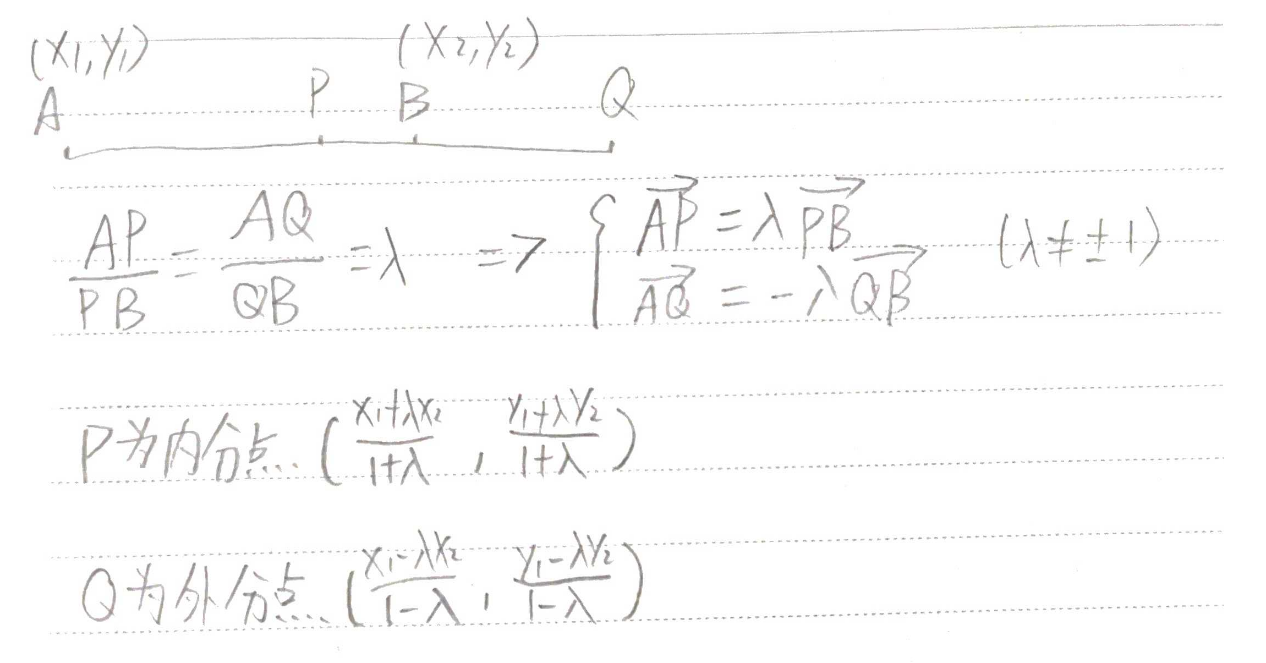 (x₁,y₁) (x₂,y₂)
A P B Q
AP/PB = AQ/QB = λ => { AP→ = λ PB→ (λ≠±1)
AQ→ = -λ QB→
P为内分点 ( (x₁+λx₂)/(1+λ) , (y₁+λy₂)/(1+λ) )
Q为外分点 ( (x₁-λx₂)/(1-λ) , (y₁-λy₂)/(1-λ) )